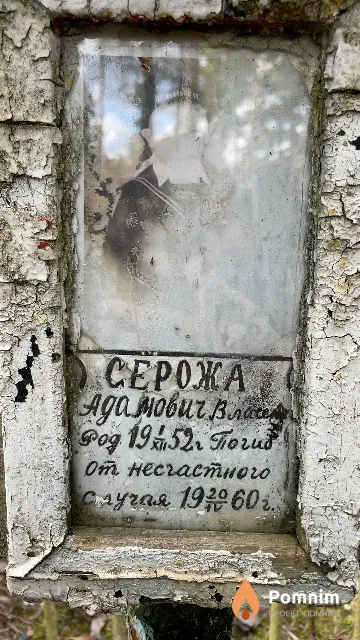 СЕРОЖА
АДАМОВИЧ Власен
Род 19 I/XII 52 г Погиб
от несчастного
случая 19 20/IV 60 г.
Pomnim
ПРОЕКТ ПОМНИМ